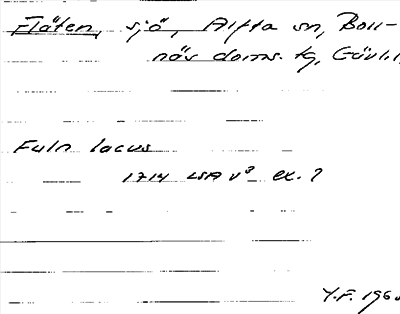 Flåten, sjö, Alfta sn, Boll-
näs doms. tg, Gävl.l,
Fuln lacus
1714 LSA V³ ex. ?
Y.F. 196